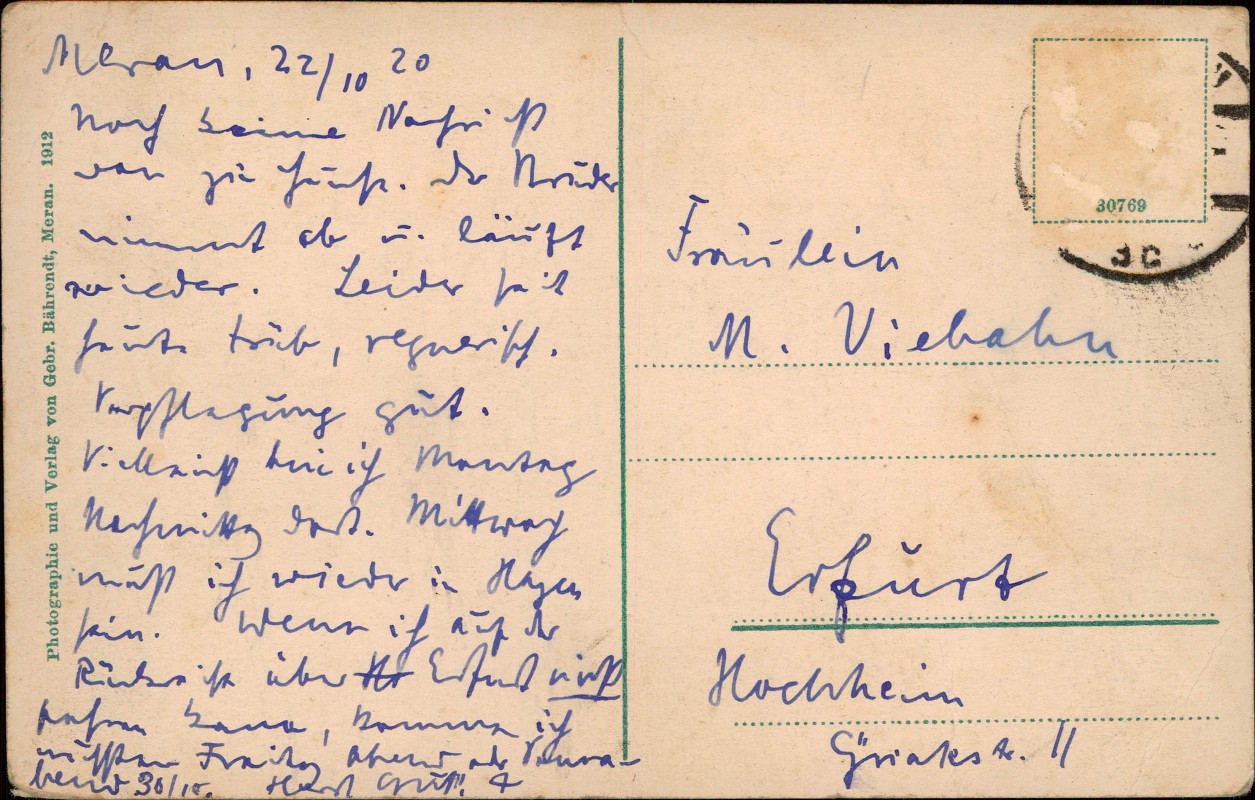 Meran, 22/10 20
Noch keine Nachricht
von zu Hause. Der Bruder
nimmt ab u. läuft
wieder. Leider seit
heute trüb, regnerisch.
Verpflegung gut.
Vielleicht bin ich Montag
Nachmittag dort. Mittwoch
muß ich wieder in Hagen
sein. Wenn ich auf der
Rückreise über Erfurt nicht
fahren kann, komme ich
nächsten Freitag Abend oder Sonna-
bend 30/10. Herzl Gruß!
Photographie und Verlag von Gebr. Bährendt, Meran. 1912
30769
Fräulein
M. Viebahn
Erfurt
Hochheim
11